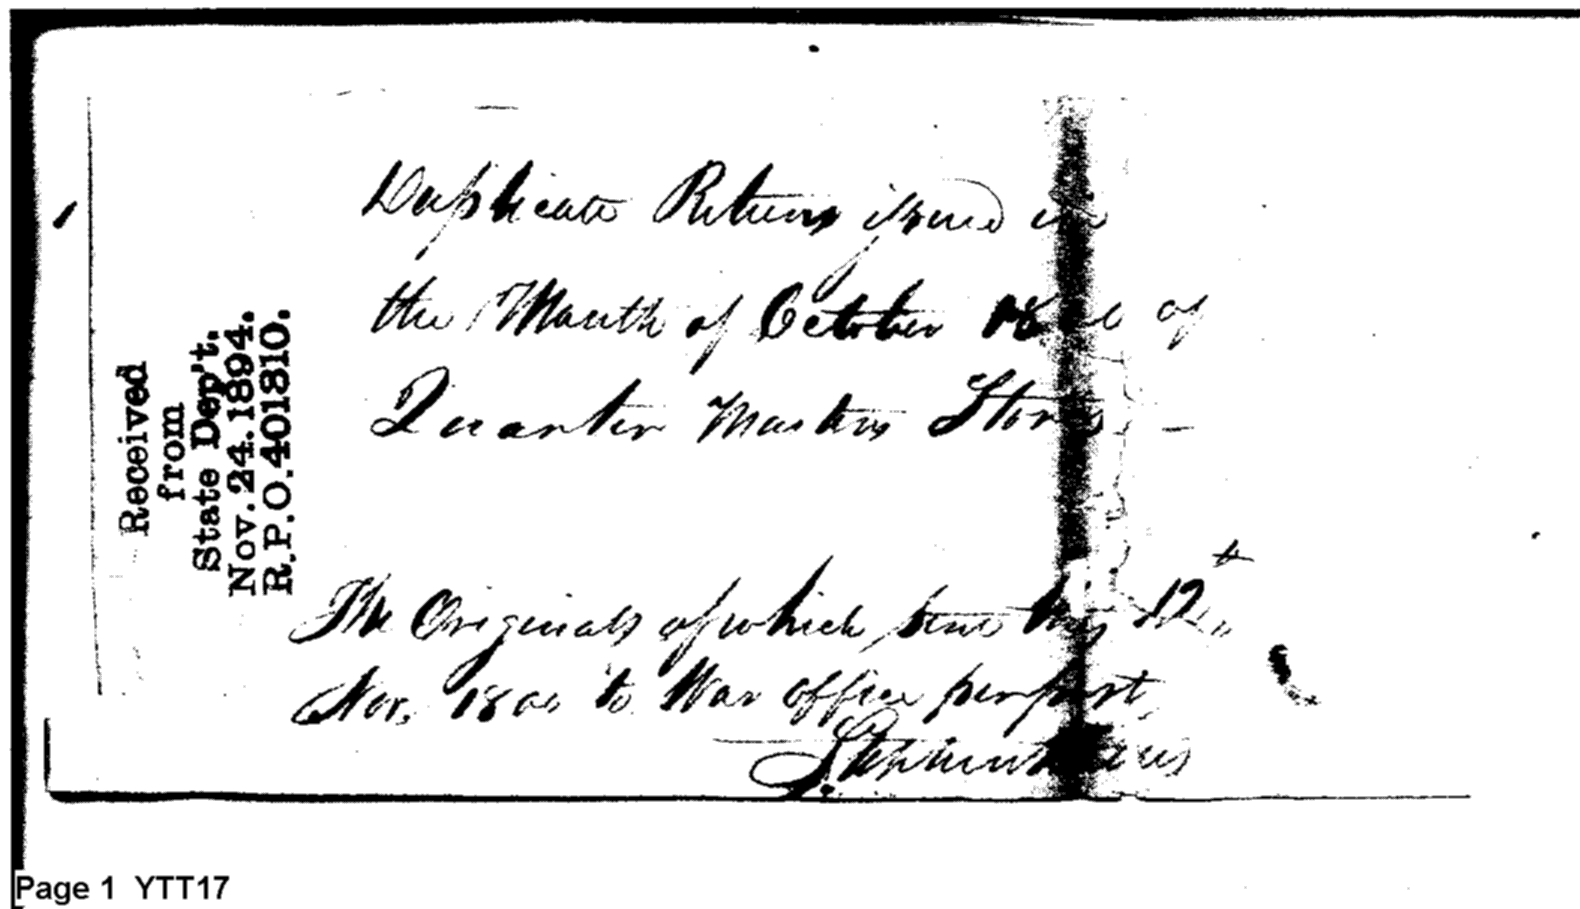 Received
from
State Dep't.
Nov. 24. 1894.
R.P.O. 401810.
Duplicate Returns issued in
the Month of October of
Quarter Masters Stores –
The Originals of which sent this 12th
Nov. 1800 to War office per post
Page 1 YTT17